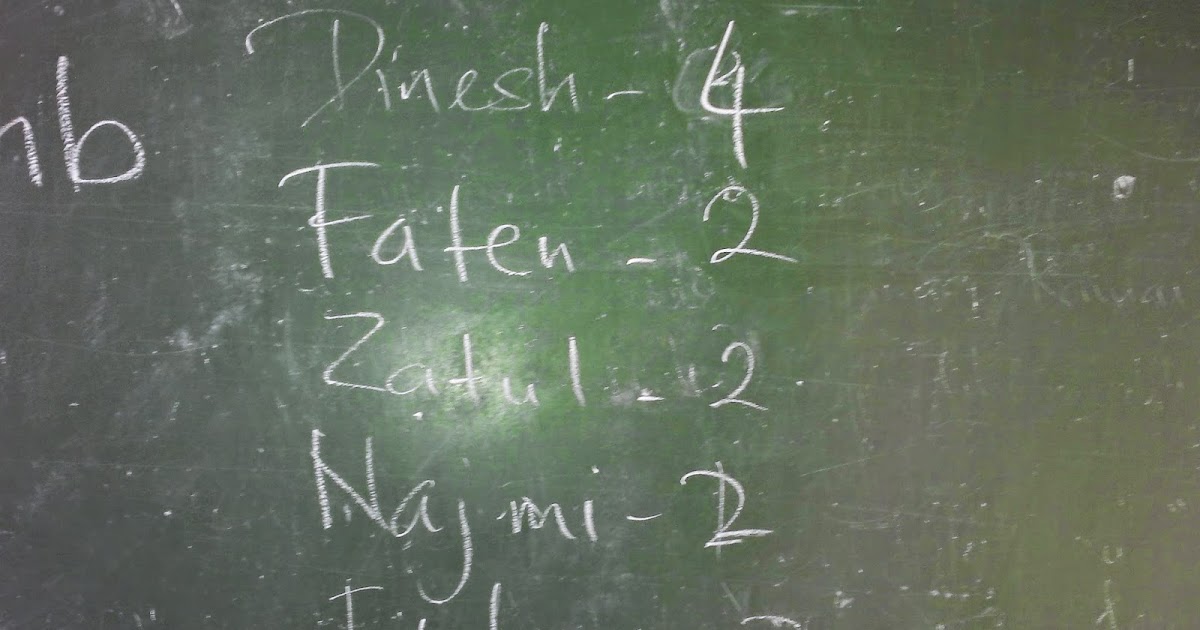 nb
Dinesh - 4
Faten - 2
Zatul - 2
Najmi - 2